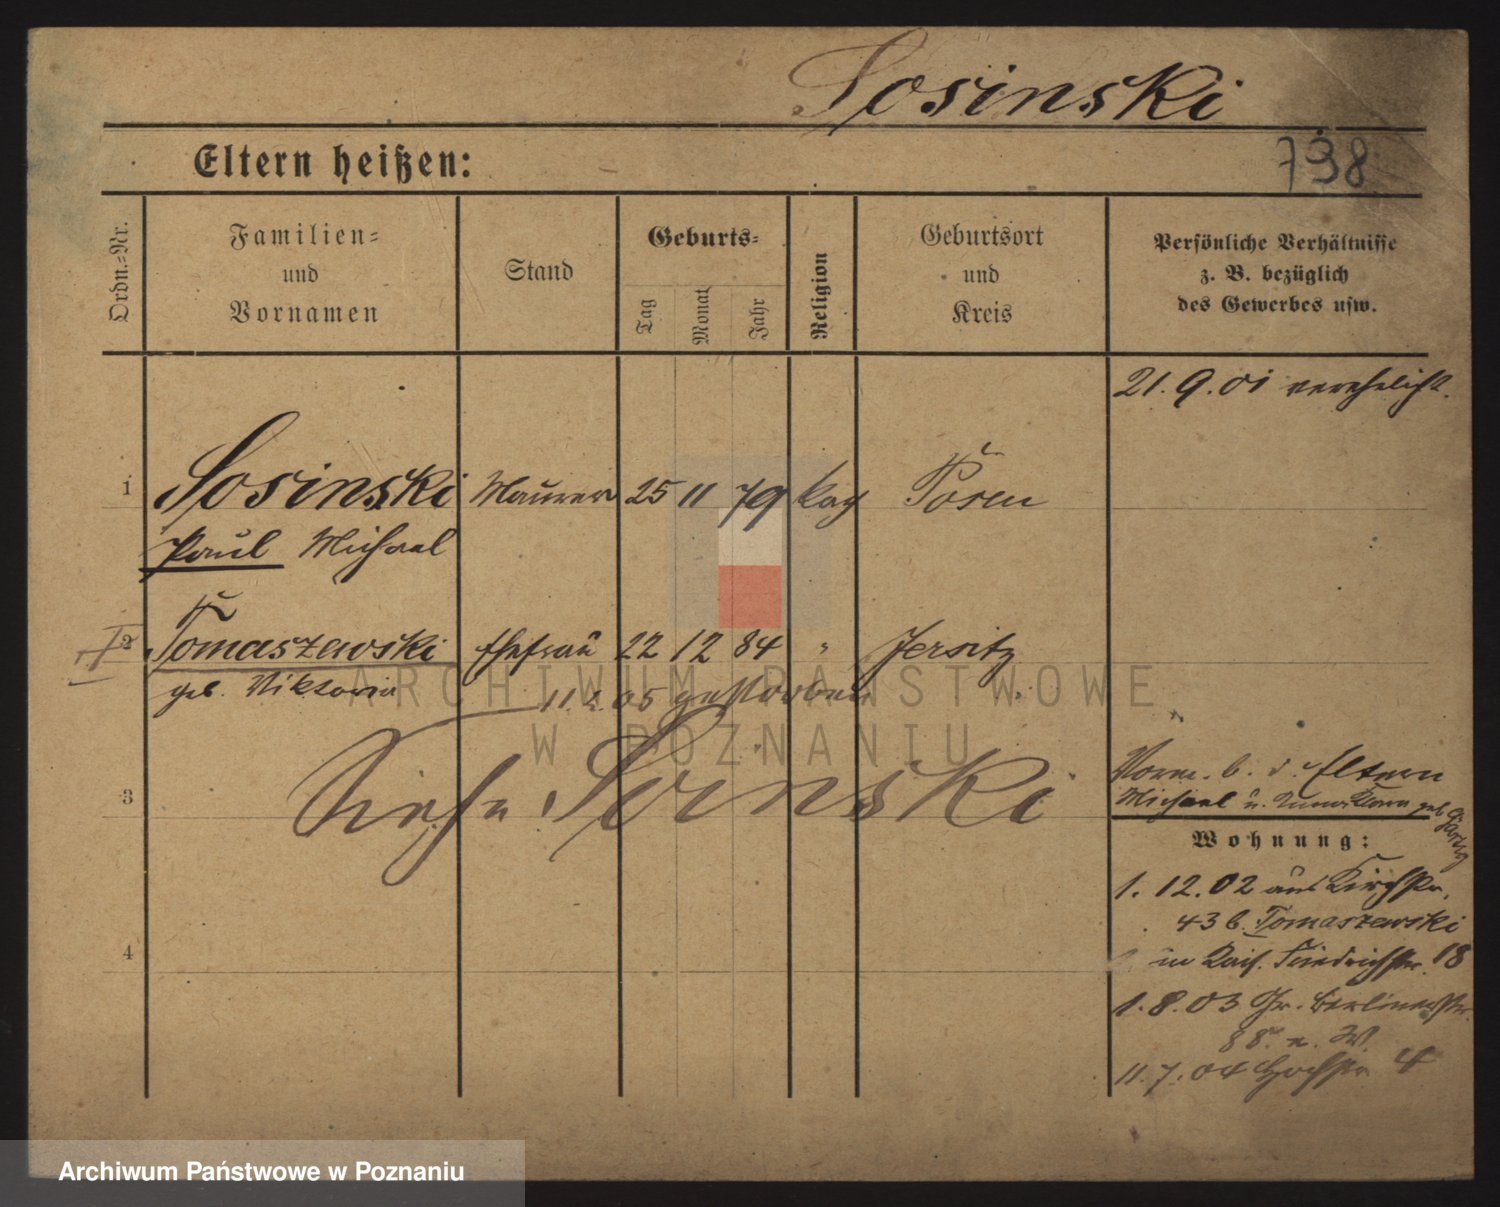 Sosinski
Eltern heißen:
798
Ordn.-Nr.
Familien-
und
Vornamen
Stand
Geburts-
Tag
Monat
Jahr
Religion
Geburtsort
und
Kreis
Persönliche Verhältnisse
z. B. bezüglich
des Gewerbes usw.
21. 9. 01 verehelicht.
1 Sosinski Maurer 25 11 79 kath Posen
Paul Michael
2 Tomaszewski Ehefrau 22 12 84 " Jersitz
geb. Viktoria
11. 2. 05 gestorben
ARCHIWUM PAŃSTWOWE
W POZNANIU
3 Siehe
Vorm. b. d. Eltern
Michael u.
geb.
Wohnung:
1. 12. 02 aus Kirchstr.
43 b. Tomaszewski
in Kais. Friedrichstr. 18
4
1. 8. 03 Gr. Berlinerstr.
88. n. W.
11. 7. 04 Hochstr 4
Archiwum Państwowe w Poznaniu